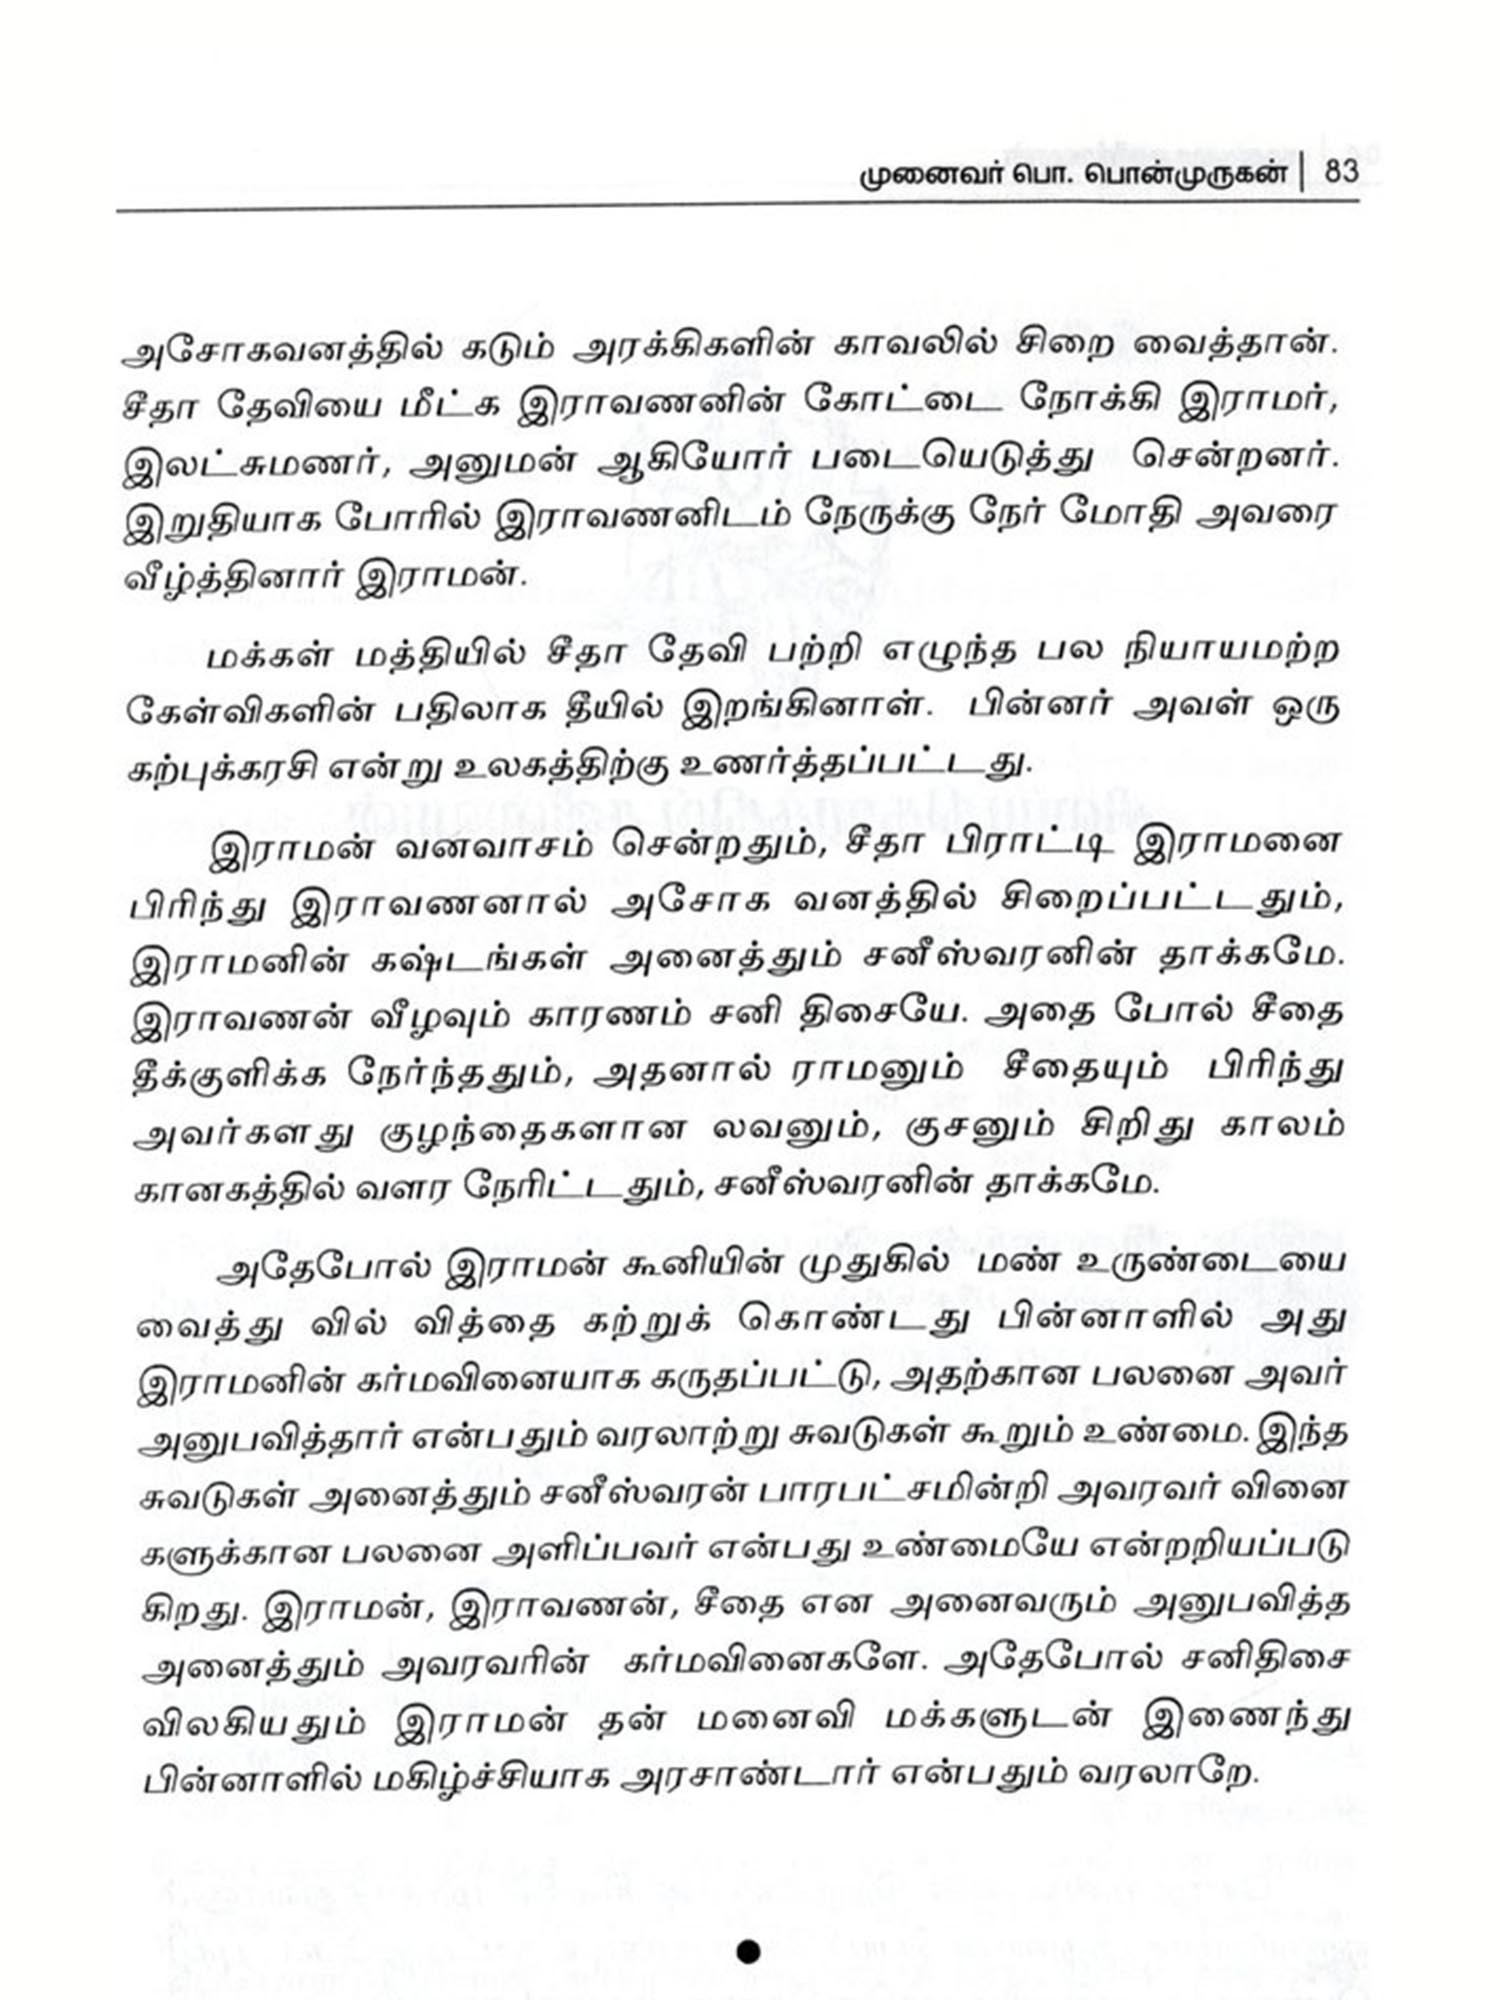 முனைவர் பொ. பொன்முருகன் | 83
அசோகவனத்தில் கடும் அரக்கிகளின் காவலில் சிறை வைத்தான்.
சீதா தேவியை மீட்க இராவணனின் கோட்டை நோக்கி இராமர்,
இலட்சுமணர், அனுமன் ஆகியோர் படையெடுத்து சென்றனர்.
இறுதியாக போரில் இராவணனிடம் நேருக்கு நேர் மோதி அவரை
வீழ்த்தினார் இராமன்.
மக்கள் மத்தியில் சீதா தேவி பற்றி எழுந்த பல நியாயமற்ற
கேள்விகளின் பதிலாக தீயில் இறங்கினாள். பின்னர் அவள் ஒரு
கற்புக்கரசி என்று உலகத்திற்கு உணர்த்தப்பட்டது.
இராமன் வனவாசம் சென்றதும், சீதா பிராட்டி இராமனை
பிரிந்து இராவணனால் அசோக வனத்தில் சிறைப்பட்டதும்,
இராமனின் கஷ்டங்கள் அனைத்தும் சனீஸ்வரனின் தாக்கமே.
இராவணன் வீழவும் காரணம் சனி திசையே. அதை போல் சீதை
தீக்குளிக்க நேர்ந்ததும், அதனால் ராமனும் சீதையும் பிரிந்து
அவர்களது குழந்தைகளான லவனும், குசனும் சிறிது காலம்
கானகத்தில் வளர நேரிட்டதும், சனீஸ்வரனின் தாக்கமே.
அதேபோல் இராமன் கூனியின் முதுகில் மண் உருண்டையை
வைத்து வில் வித்தை கற்றுக் கொண்டது பின்னாளில் அது
இராமனின் கர்மவினையாக கருதப்பட்டு, அதற்கான பலனை அவர்
அனுபவித்தார் என்பதும் வரலாற்று சுவடுகள் கூறும் உண்மை. இந்த
சுவடுகள் அனைத்தும் சனீஸ்வரன் பாரபட்சமின்றி அவரவர் வினை
களுக்கான பலனை அளிப்பவர் என்பது உண்மையே என்றறியப்படு
கிறது. இராமன், இராவணன், சீதை என அனைவரும் அனுபவித்த
அனைத்தும் அவரவரின் கர்மவினைகளே. அதேபோல் சனிதிசை
விலகியதும் இராமன் தன் மனைவி மக்களுடன் இணைந்து
பின்னாளில் மகிழ்ச்சியாக அரசாண்டார் என்பதும் வரலாறே.